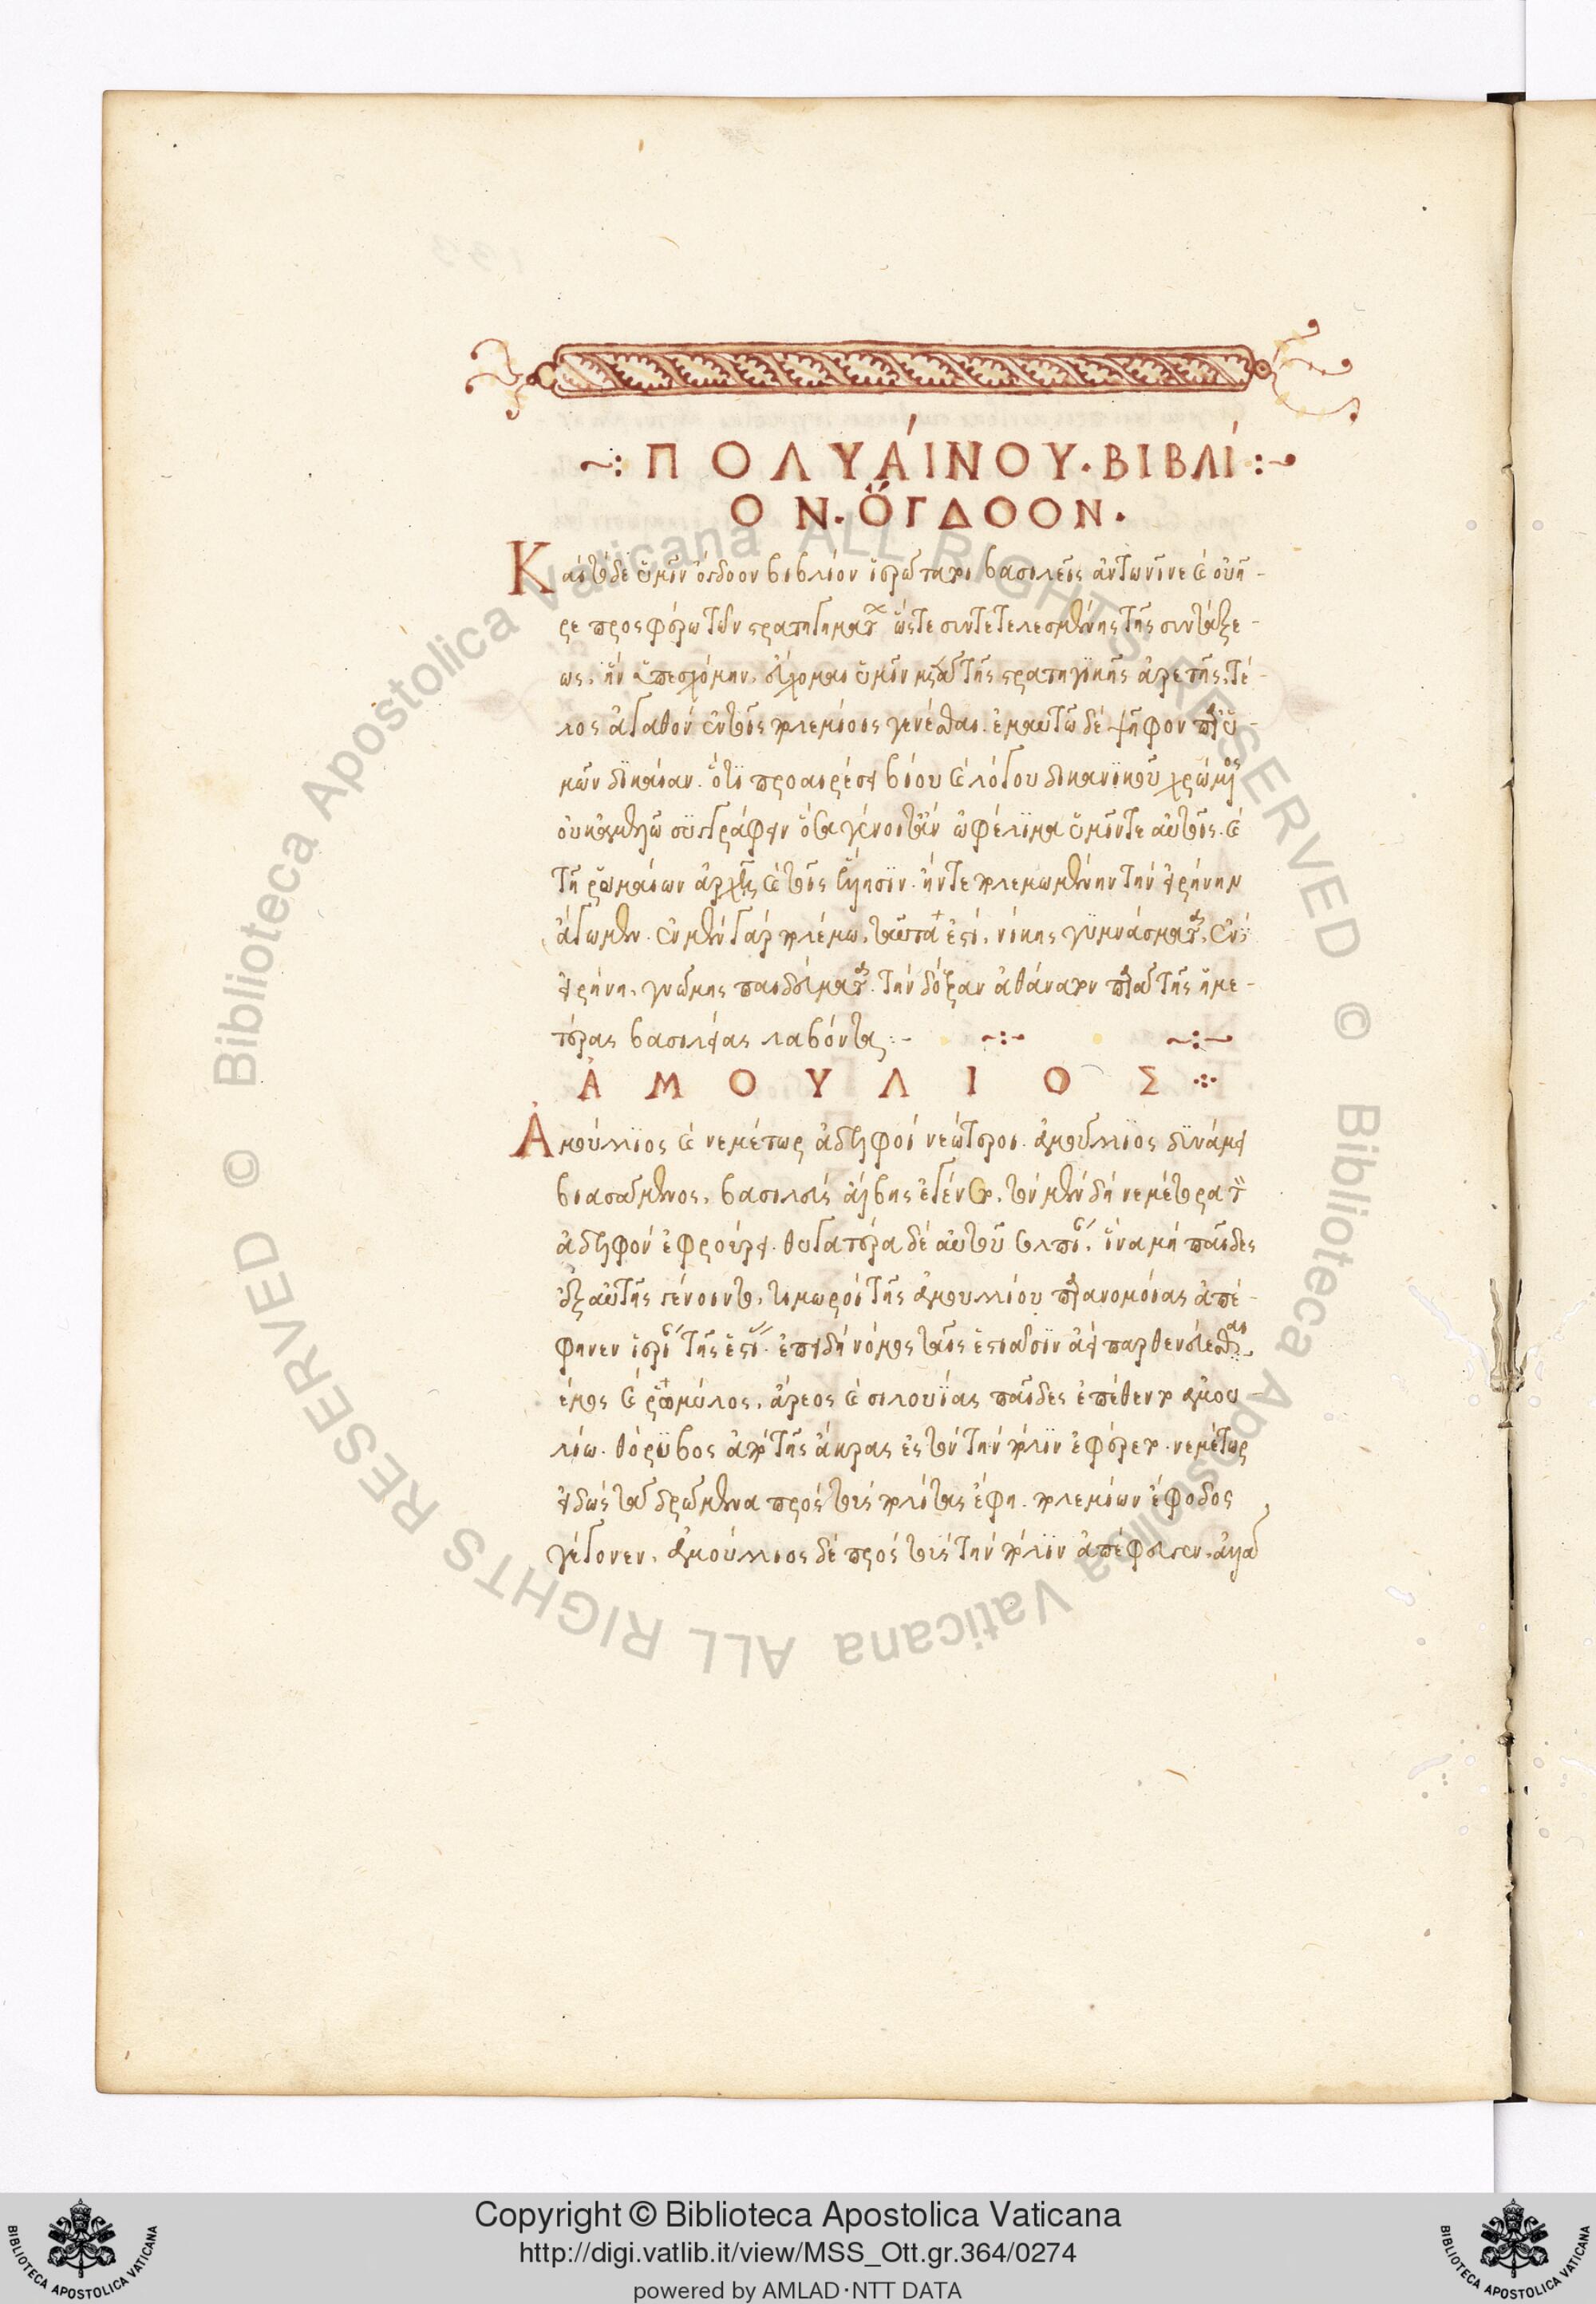 ΠΟΛΥΑΊΝΟΥ. ΒΙΒΛΊ
ΟΝ. ὌΓΔΟΟΝ.
Καὶ τόδε ὑμῖν ὄγδοον βιβλίον ἱερώτατοι βασιλεῖς ἀντωνῖνε καὶ οὐῆ-
ρε προσφέρω τῶν στρατηγημάτων ὥστε συντετελεσμένης τῆς συντάξε-
ως, ἣν ὑπεσχόμην, εὔχομαι ὑμῖν μὲν τῆς στρατηγικῆς ἀρετῆς, τέ-
λος ἀγαθὸν ἐν τοῖς πολεμίοις γενέσθαι. ἐμαυτῶ δὲ ψῆφον παρ' ὑ-
μῶν δικαίαν. ὅτι προαιρέσει βίου καὶ λόγου δικανικοῦ χρώμενος
οὐκ συγγράφειν ὅσα γένοιτ' ἂν ὠφέλιμα ὑμῖν τε αὐτοῖς. καὶ
τῆ ῥωμαίων ἀρχῆ καὶ τοῖς ἕλλησιν. ἤν τε πολεμωμένην τὴν εἰρήνην
ἄγωμεν. ἐν μὲν γὰρ πολέμω, ταῦτά ἐστι, νίκης γυμνάσματα, ἐν
εἰρήνη, γνώμης παιδεύματα. τὴν δόξαν ἀθάνατον παρὰ τῆς ἡμε-
τέρας βασιλείας λαβόντα
ἈΜΟΥΛΙΟΣ
Ἀμούλλιος καὶ νεμέτωρ ἀδελφοὶ νεώτεροι. ἀμούλλιος δυνάμει
βιασάμενος, βασιλεὺς ἄλβης ἐγένετο, τὸν μὲν δὴ νεμέτορα τὸν
ἀδελφὸν ἐφρούρει. θυγατέρα δὲ αὐτοῦ ἵνα μὴ παῖδες
ἐξ αὐτῆς γένοιντο, τιμωροὶ τῆς ἀμουλλίου παρανομοίας ἀπέ-
φηνεν ἱέρειαν τῆς ἑστίας. ἐπειδὴ νόμος ταῖς ἑστιάσιν ἀεὶ παρθενεύεσθαι
έμος καὶ ῥωμύλος, ἄρεος καὶ σιλουίας παῖδες ἐπέθεντο ἀμου-
λίω. θόρυβος ἀπὸ τῆς ἄκρας ἐς τὸν τὴν πόλιν ἐφέρετο. νεμέτωρ
εἰδὼς τὰ δρώμενα πρὸς τοὺς πολίτας ἔφη. πολεμίων ἔφοδος
γέγονεν, ἀμούλλιος δὲ πρὸς τοὺς τὴν πόλιν ἀπέφυγεν, ἀλλὰ
Copyright © Biblioteca Apostolica Vaticana
http://digi.vatlib.it/view/MSS_Ott.gr.364/0274
powered by AMLAD·NTT DATA
BIBLIOTECA APOSTOLICA VATICANA
BIBLIOTECA APOSTOLICA VATICANA
© Biblioteca Apostolica Vaticana ALL RIGHTS RESERVED © Biblioteca Apostolica Vaticana ALL RIGHTS RESERVED